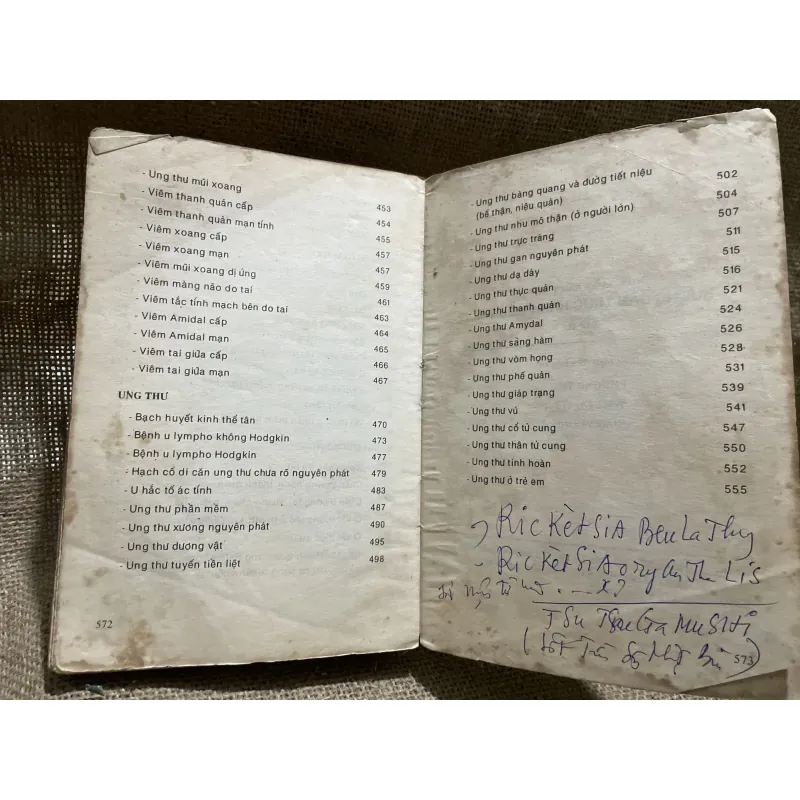 - Ung thư mũi xoang
- Viêm thanh quản cấp 453
- Viêm thanh quản mạn tính 454
- Viêm xoang cấp 455
- Viêm xoang mạn 457
- Viêm mũi xoang dị ứng 457
- Viêm màng não do tai 459
- Viêm tắc tĩnh mạch bên do tai 461
- Viêm Amidal cấp 463
- Viêm Amidal mạn 464
- Viêm tai giữa cấp 465
- Viêm tai giữa mạn 466
467
UNG THƯ
- Bạch huyết kinh thể tân 470
- Bệnh u lympho không Hodgkin 473
- Bệnh u lympho Hodgkin 477
- Hạch cổ di căn ung thư chưa rõ nguyên phát 479
- U hắc tố ác tính 483
- Ung thư phần mềm 487
- Ung thư xương nguyên phát 490
- Ung thư dương vật 495
- Ung thư tuyến tiền liệt 498
572
- Ung thư bàng quang và đường tiết niệu 502
(bể thận, niệu quản) 504
- Ung thư nhu mô thận (ở người lớn) 507
- Ung thư trực tràng 511
- Ung thư gan nguyên phát 515
- Ung thư dạ dày 516
- Ung thư thực quản 521
- Ung thư thanh quản 524
- Ung thư Amydal 526
- Ung thư sàng hàm 528
- Ung thư vòm họng 531
- Ung thư phế quản 539
- Ung thư giáp trạng 541
- Ung thư vú 547
- Ung thư cổ tử cung 550
- Ung thư thân tử cung 552
- Ung thư tinh hoàn 555
- Ung thư ở trẻ em
RicKètSiA
- RicKètSiA
573